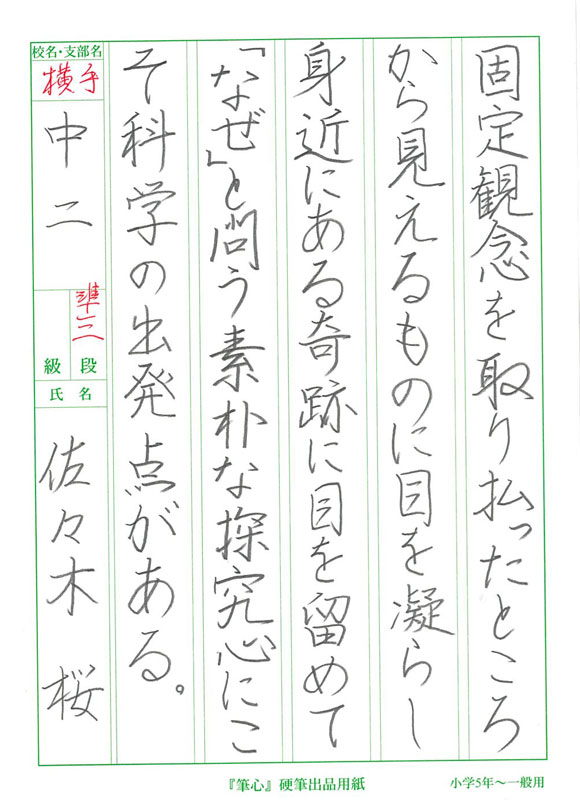 固定観念を取り払ったところ
から見えるものに目を凝らし
身近にある奇跡に目を留めて
「なぜ」と問う素朴な探究心にこ
そ科学の出発点がある。
校名・支部名
横手
中二
準三
級 段
氏 名
佐々木 桜
『筆心』硬筆出品用紙
小学5年～一般用